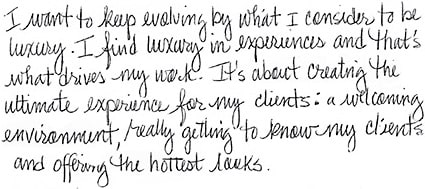 I want to keep evolving by what I consider to be
luxury. I find luxury in experiences and that's
what drives my work. It's about creating the
ultimate experience for my clients: a welcoming
environment, really getting to know my clients
and offering the hottest looks.